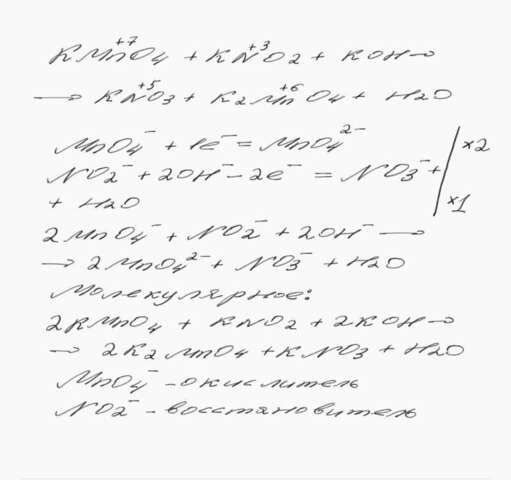 KMn⁺⁷O4 + KN⁺³O2 + KOH →
→ KN⁺⁵O3 + K2Mn⁺⁶O4 + H2O
MnO4⁻ + 1e⁻ = MnO4²⁻ | x2
NO2⁻ + 2OH⁻ - 2e⁻ = NO3⁻ +
+ H2O | x1
2MnO4⁻ + NO2⁻ + 2OH⁻ →
→ 2MnO4²⁻ + NO3⁻ + H2O
Молекулярное:
2KMnO4 + KNO2 + 2KOH →
→ 2K2MnO4 + KNO3 + H2O
MnO4⁻ - окислитель
NO2⁻ - восстановитель